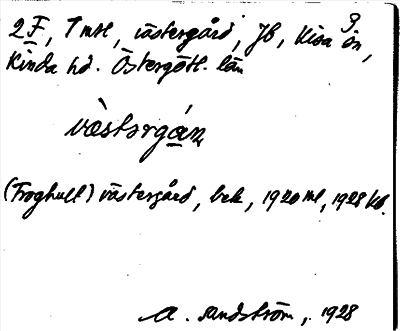 2 F, 1 mtl, västergård, JB, Kisa sn,
Kinda hd. Östergötl. län
västərgán
(Froghult) västergård, bek, 1920 ml, 1928 kb.
A. Sandström, 1928